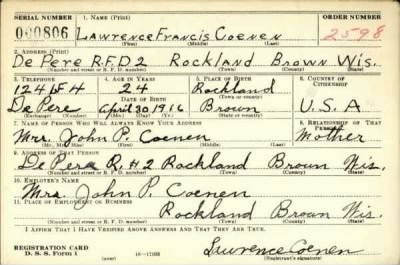 SERIAL NUMBER 1. NAME (Print) ORDER NUMBER
000806 LAWRENCE FRANCIS COENEN 2598
(First) (Middle) (Last)
2. ADDRESS (Print)
De Pere R.F.D 2 Rockland Brown Wis.
(Number and street or R. F. D. number) (Town) (County) (State)
3. TELEPHONE 4. AGE IN YEARS 5. PLACE OF BIRTH 6. COUNTRY OF CITIZENSHIP
24 Rockland
DATE OF BIRTH (Town or county)
De Pere April 30 1916 Brown U.S.A
(Exchange) (Number) (Mo.) (Day) (Yr.) (State or country)
7. NAME OF PERSON WHO WILL ALWAYS KNOW YOUR ADDRESS 8. RELATIONSHIP OF THAT PERSON
Mrs. John P. Coenen Mother
(Mr., Mrs., Miss) (First) (Middle) (Last)
9. ADDRESS OF THAT PERSON
De Pere R#2 Rockland Brown Wis.
(Number and street or R. F. D. number) (Town) (County) (State)
10. EMPLOYER'S NAME
Mrs. John P. Coenen
11. PLACE OF EMPLOYMENT OR BUSINESS
Rockland Brown Wis.
(Number and street or R. F. D. number) (Town) (County) (State)
I AFFIRM THAT I HAVE VERIFIED ABOVE ANSWERS AND THAT THEY ARE TRUE.
REGISTRATION CARD
D. S. S. Form 1 16—17105 Lawrence Coenen
(Registrant's signature)